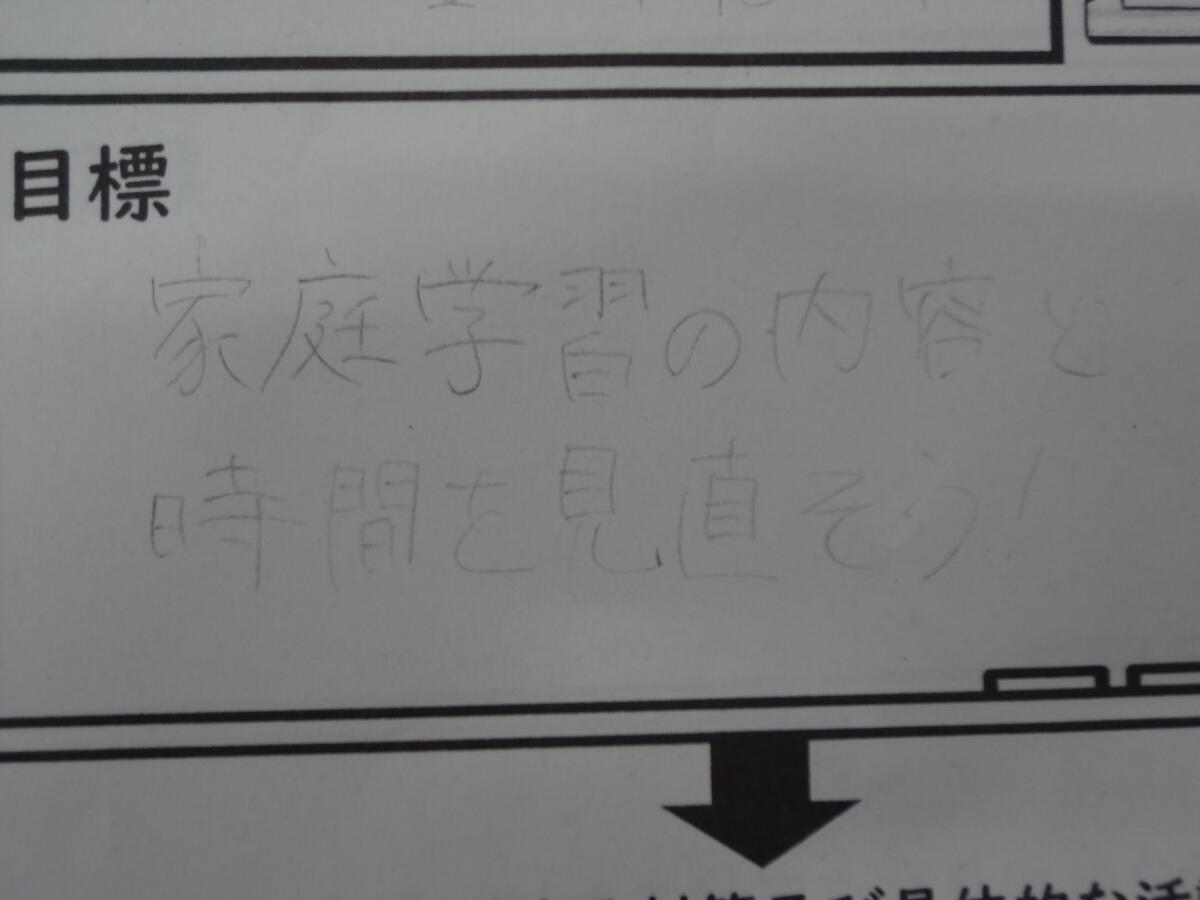 目標
家庭学習の内容と
時間を見直そう!
具体的な活